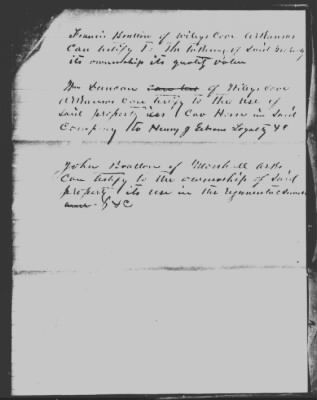 Francis Bratton of Wileys Cove Arkansas
Can testify to the taking of said property
its ownership its quality value
Wm Duncan of Wileys Cove
Arkansas Can testify to the use of
said property as Cav Horse in said
Company to Henry J Loyalty &c
John Bratton of Marshall Arks
Can testify to the ownership of said
property its use in the
&C